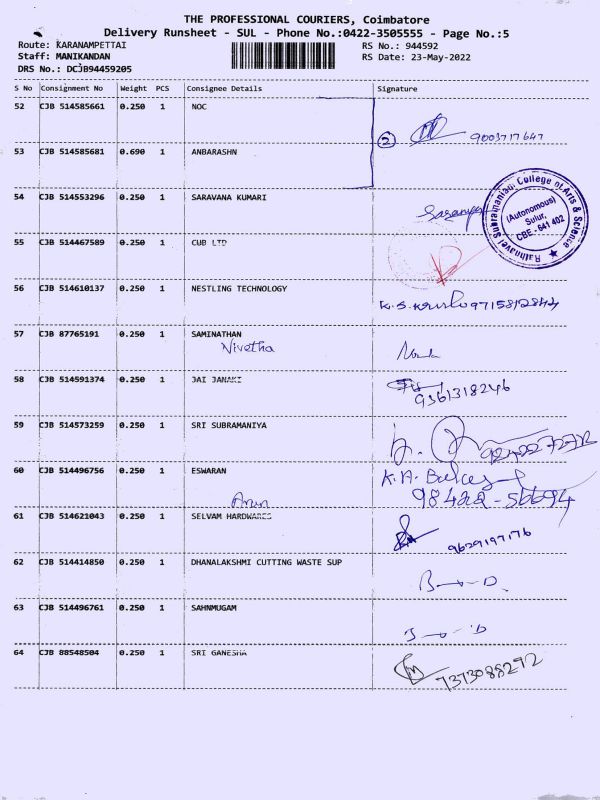 THE PROFESSIONAL COURIERS, Coimbatore
Delivery Runsheet - SUL - Phone No.:0422-3505555 - Page No.:5
Route: KARANAMPETTAI RS No.: 944592
Staff: MANIKANDAN RS Date: 23-May-2022
DRS No.: DCJB94459205
S No Consignment No Weight PCS Consignee Details Signature
52 CJB 514585661 0.250 1 NOC
2 9003717647
53 CJB 514585681 0.690 1 ANBARASHN
54 CJB 514553296 0.250 1 SARAVANA KUMARI
Rathnavel Subramaniam College of Arts & Science
(Autonomous)
Sulur,
CBE - 641 402
55 CJB 514467589 0.250 1 CUB LTD
56 CJB 514610137 0.250 1 NESTLING TECHNOLOGY
57 CJB 87765191 0.250 1 SAMINATHAN
Nivetha
58 CJB 514591374 0.250 1 JAI JANAKI
9361318246
59 CJB 514573259 0.250 1 SRI SUBRAMANIYA
60 CJB 514496756 0.250 1 ESWARAN K.A.
98422-56694
Arun
61 CJB 514621043 0.250 1 SELVAM HARDWARES
9629197176
62 CJB 514414850 0.250 1 DHANALAKSHMI CUTTING WASTE SUP
63 CJB 514496761 0.250 1 SAHNMUGAM
64 CJB 88548504 0.250 1 SRI GANESHA
7373088292